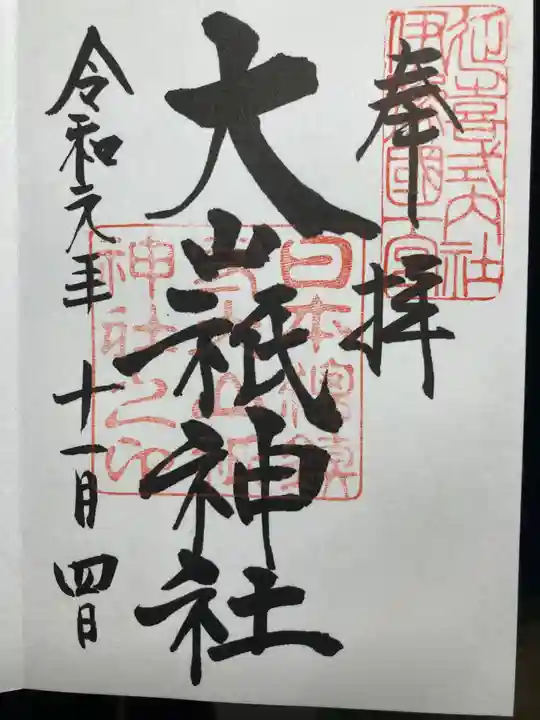 奉拝
延喜式内社
伊豫國一宮
大山祇神社
日本總鎮
守大山祇
神社之印
令和元年 十一月 四日